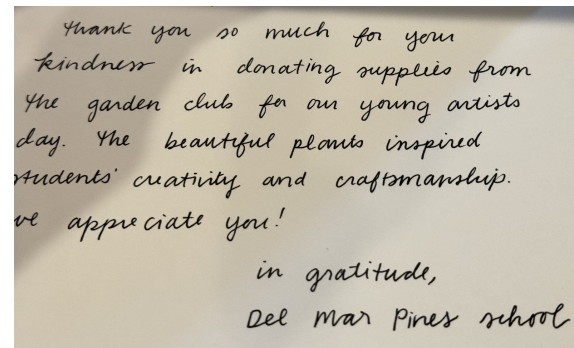 thank you so much for your
kindness in donating supplies from
the garden club for our young artists
day. The beautiful plants inspired
students' creativity and craftsmanship.
we appreciate you!
in gratitude,
Del Mar Pines school